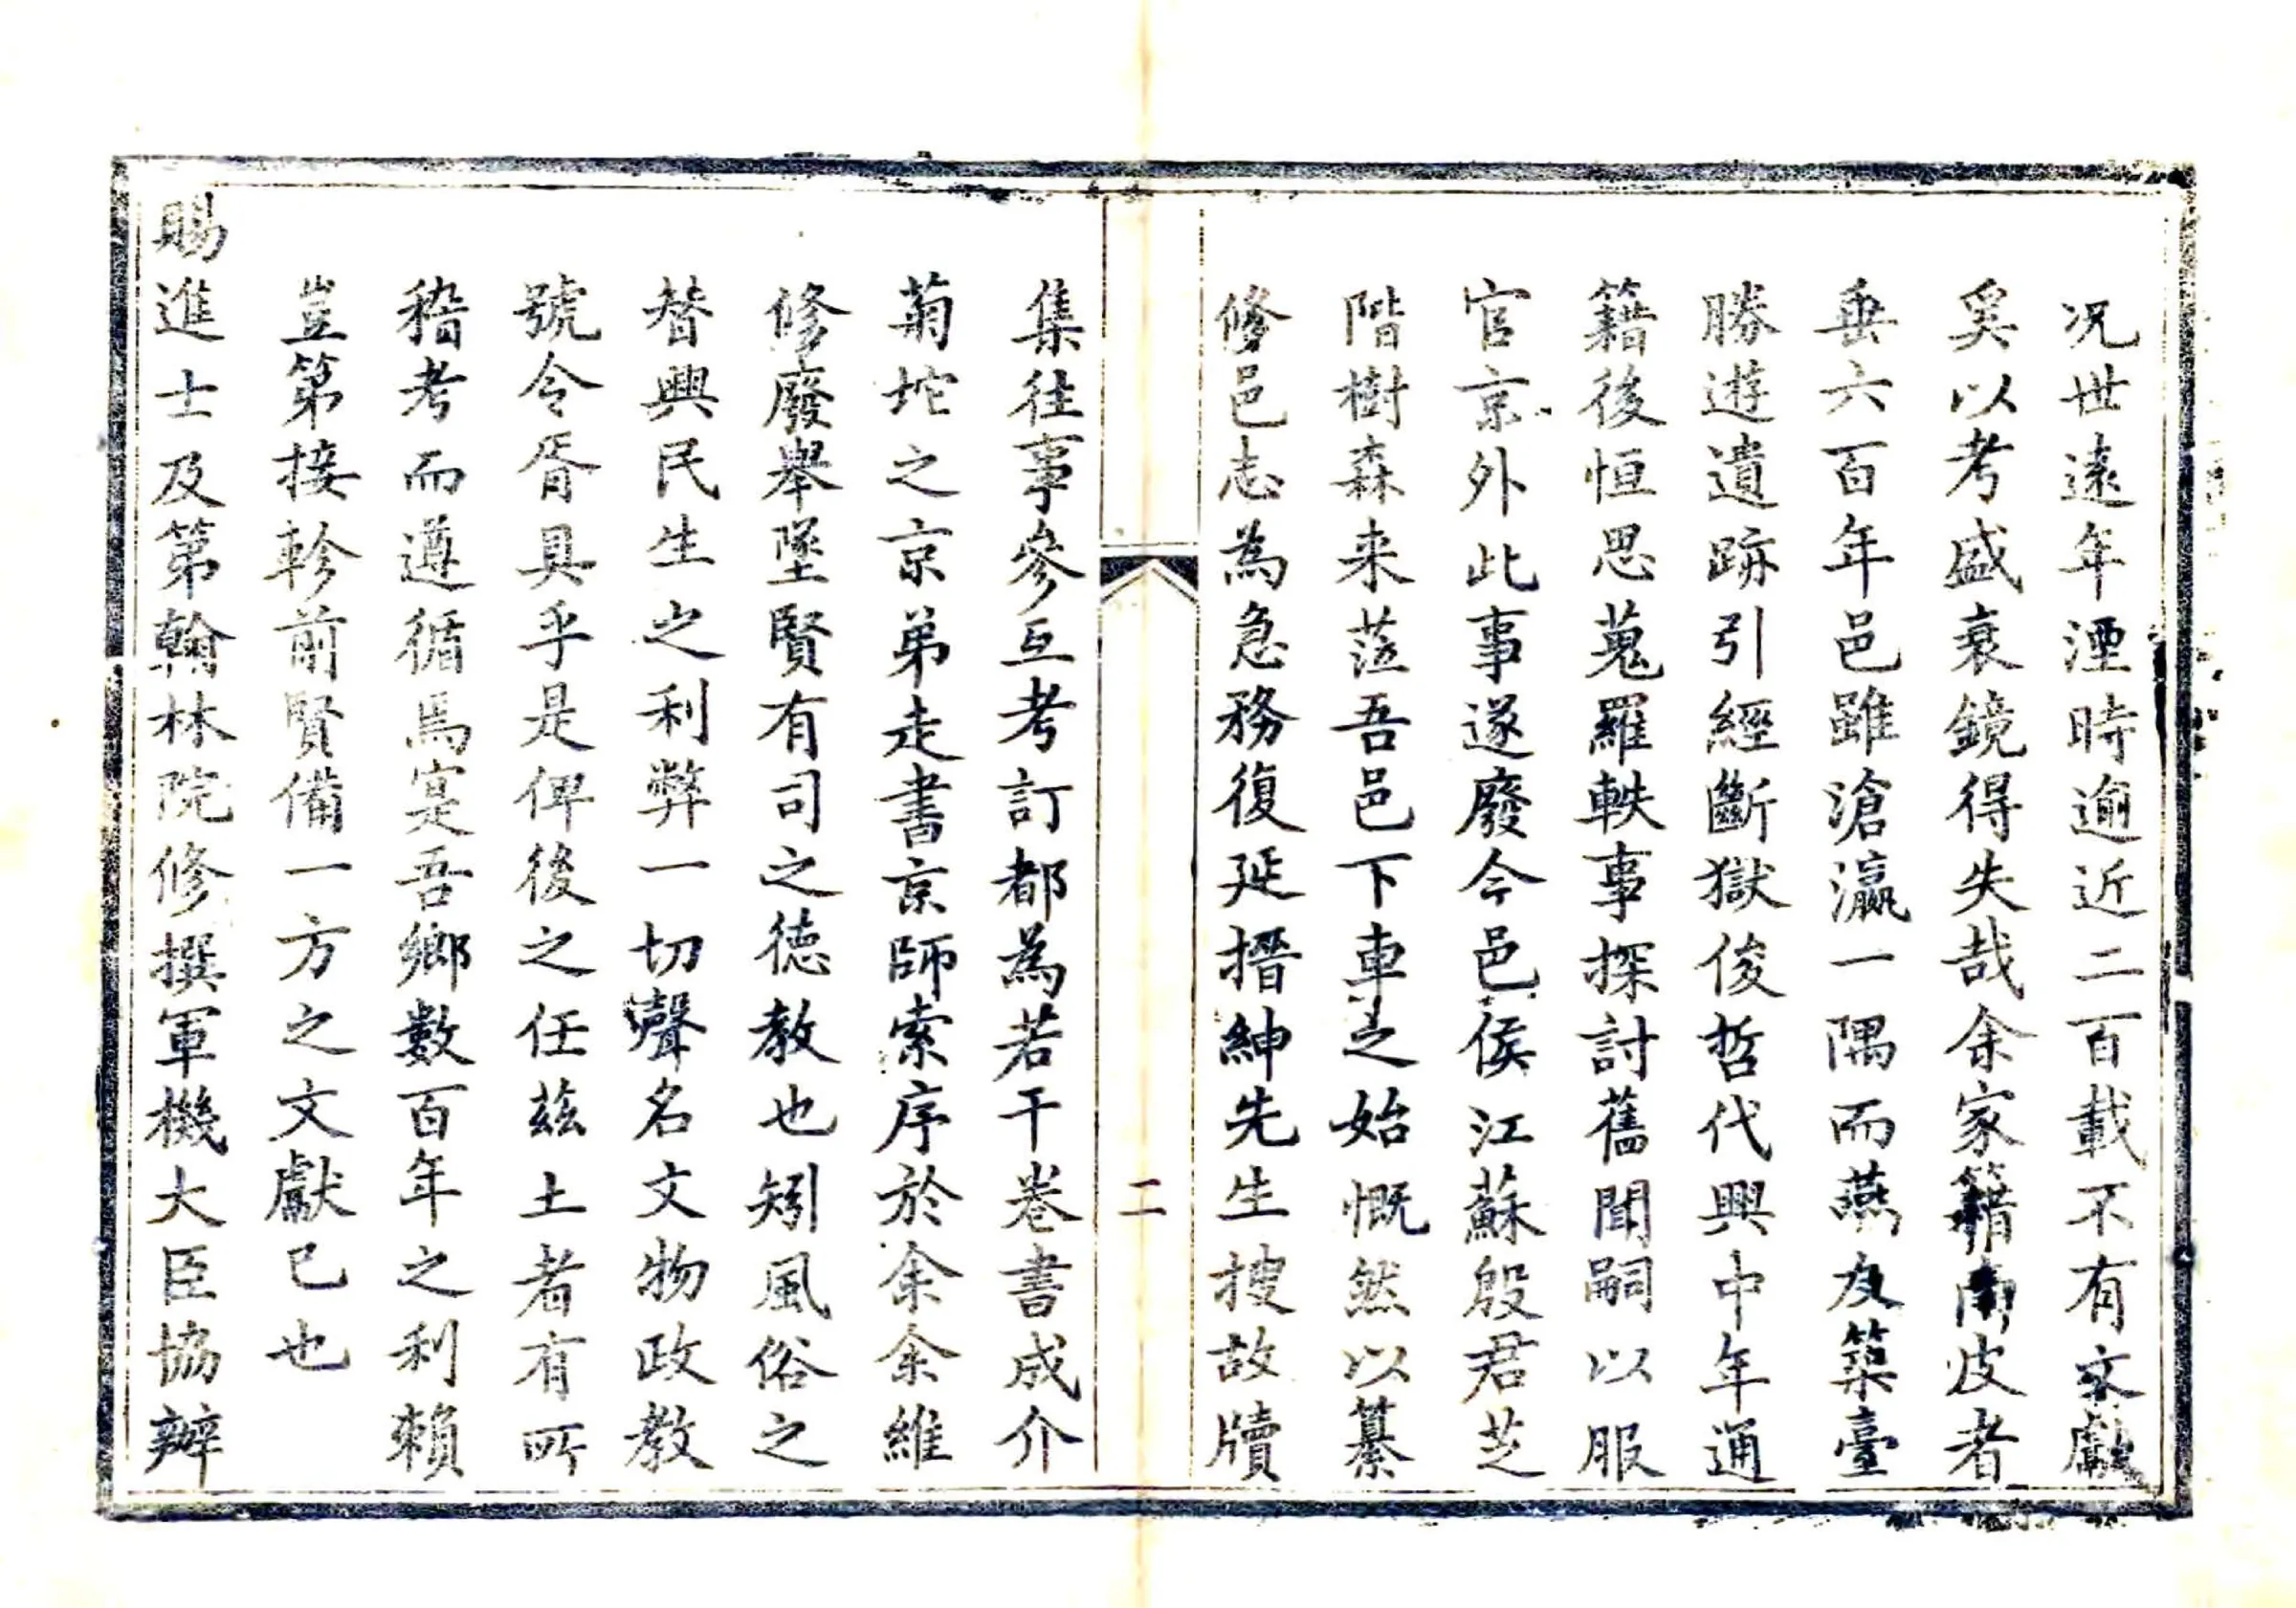 况世遠年湮時逾近二百載不有文獻
奚以考盛衰鏡得失哉余家籍南皮者
垂六百年邑雖滄瀛一隅而燕友築臺
勝遊遺跡引經斷獄俊哲代興中年通
籍後恒思蒐羅軼事探討舊聞嗣以服
官京外此事遂廢今邑侯江蘇殷君芝
階樹森来蒞吾邑下車之始慨然以纂
修邑志為急務復延搢紳先生搜故牘
二
集往事參互考訂都為若干卷書成介
菊坨之京弟走書京師索序於余余維
修廢舉墜賢有司之德教也矧風俗之
替興民生之利弊一切聲名文物政教
號令胥具乎是俾後之任茲土者有所
稽考而遵循焉寔吾鄉數百年之利賴
豈第接軫前賢備一方之文獻已也
賜進士及第翰林院修撰軍機大臣協辦